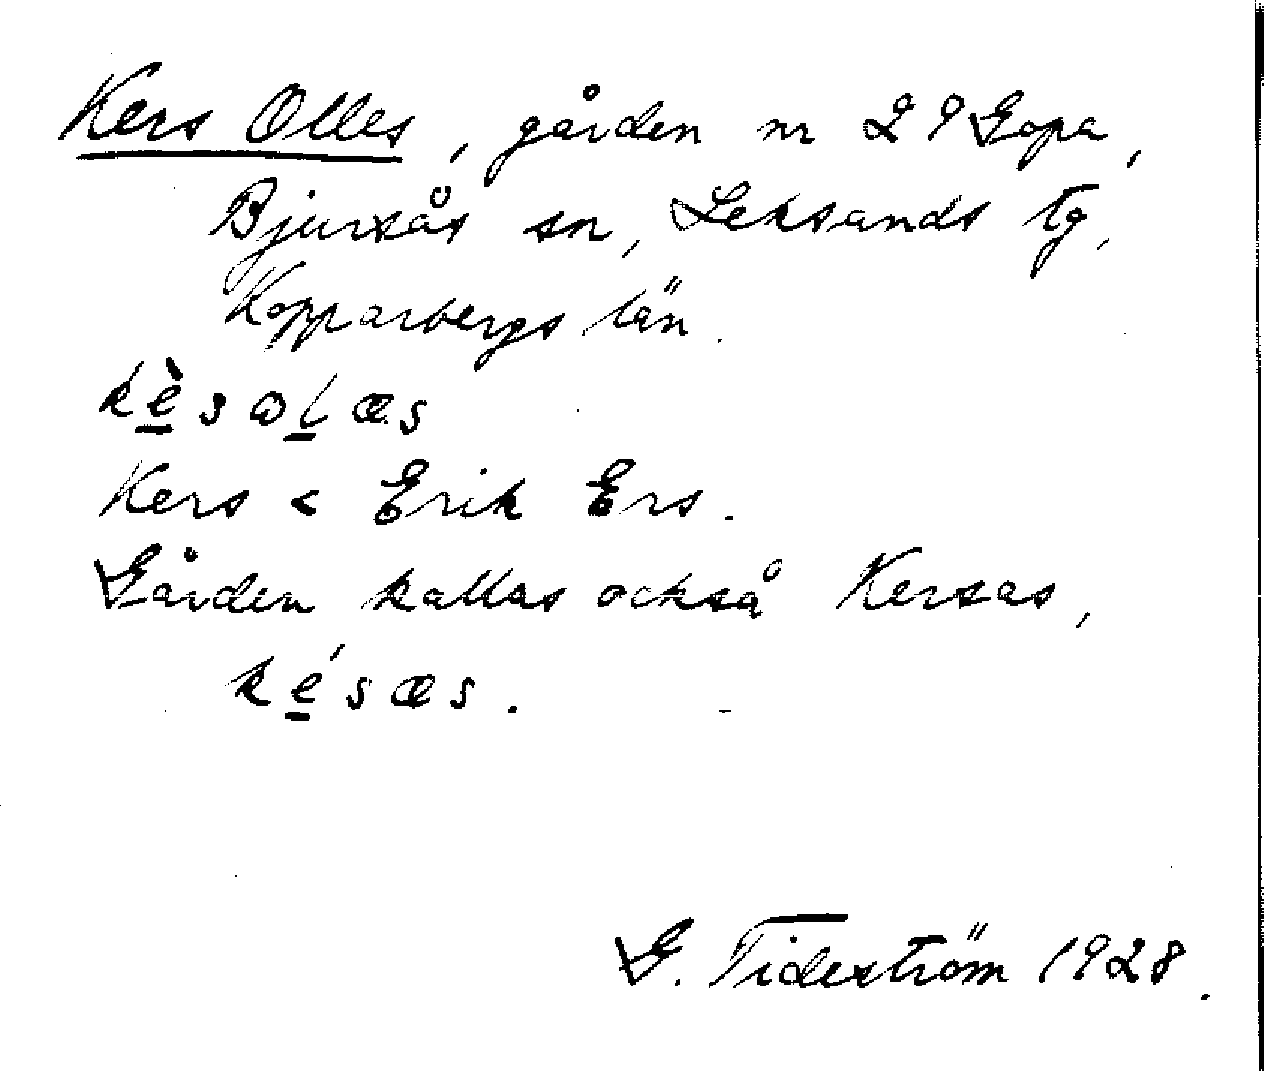 Kers Olles, gården nr 29 Gopa,
Bjursås sn, Leksands tg,
Kopparbergs län.
kèsɷlæs
Kers < Erik Ers.
Gården kallas också Kersas,
késæs.
G. Tideström 1928.